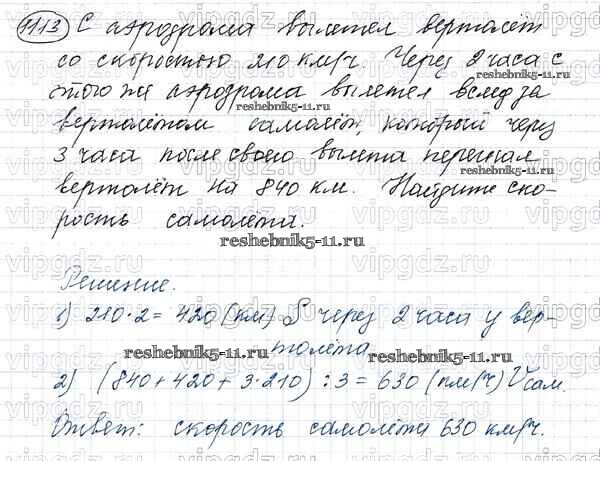 1113 С аэродрома вылетел вертолёт
со скоростью 210 км/ч. Через 2 часа с
этого же аэродрома вылетел вслед за
вертолётом самолёт, который через
3 часа после своего вылета перегнал
вертолёт на 840 км. Найдите ско-
рость самолета.
reshebnik5-11.ru
Решение.
1) 210·2 = 420 (км) S через 2 часа у вер-
толёта
2) (840+420+3·210):3 = 630 (км/ч) Vсам.
Ответ: скорость самолёта 630 км/ч.
reshebnik5-11.ru
vipgdz.ru